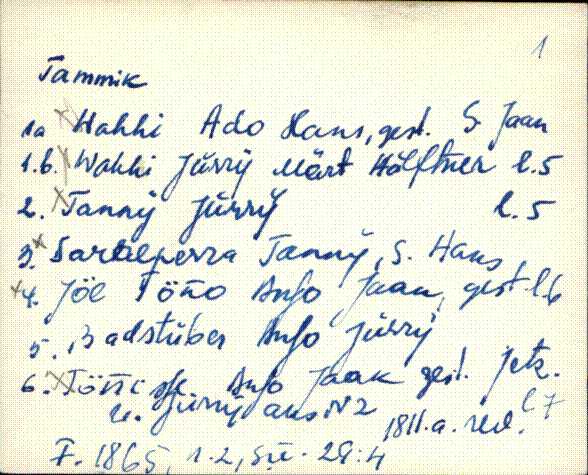 1
Tammik
1a Wahhi Ado Hans, gest. S. Jaan
1.b. Wahhi Jürry Märt Hälftner l.5
2. Tanny Jürry l.5
3. Tanny, S. Hans
4. Jöe Töno Anso Jaan, gest. l.6
5. Badstüber Anso Jürry
6. Anso Jaak gest. Jetz.
u. Jürry aus N 2 1811.a. rev. l.7
F. 1865, 1.2, su. 29:4